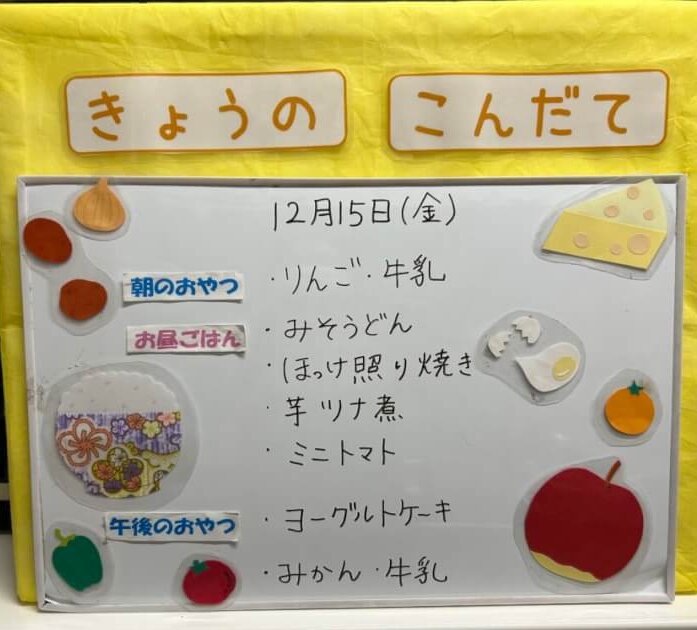 きょうの こんだて
12月15日(金)
朝のおやつ ・りんご・牛乳
お昼ごはん ・みそうどん
・ほっけ照り焼き
・芋ツナ煮
・ミニトマト
午後のおやつ ・ヨーグルトケーキ
・みかん・牛乳